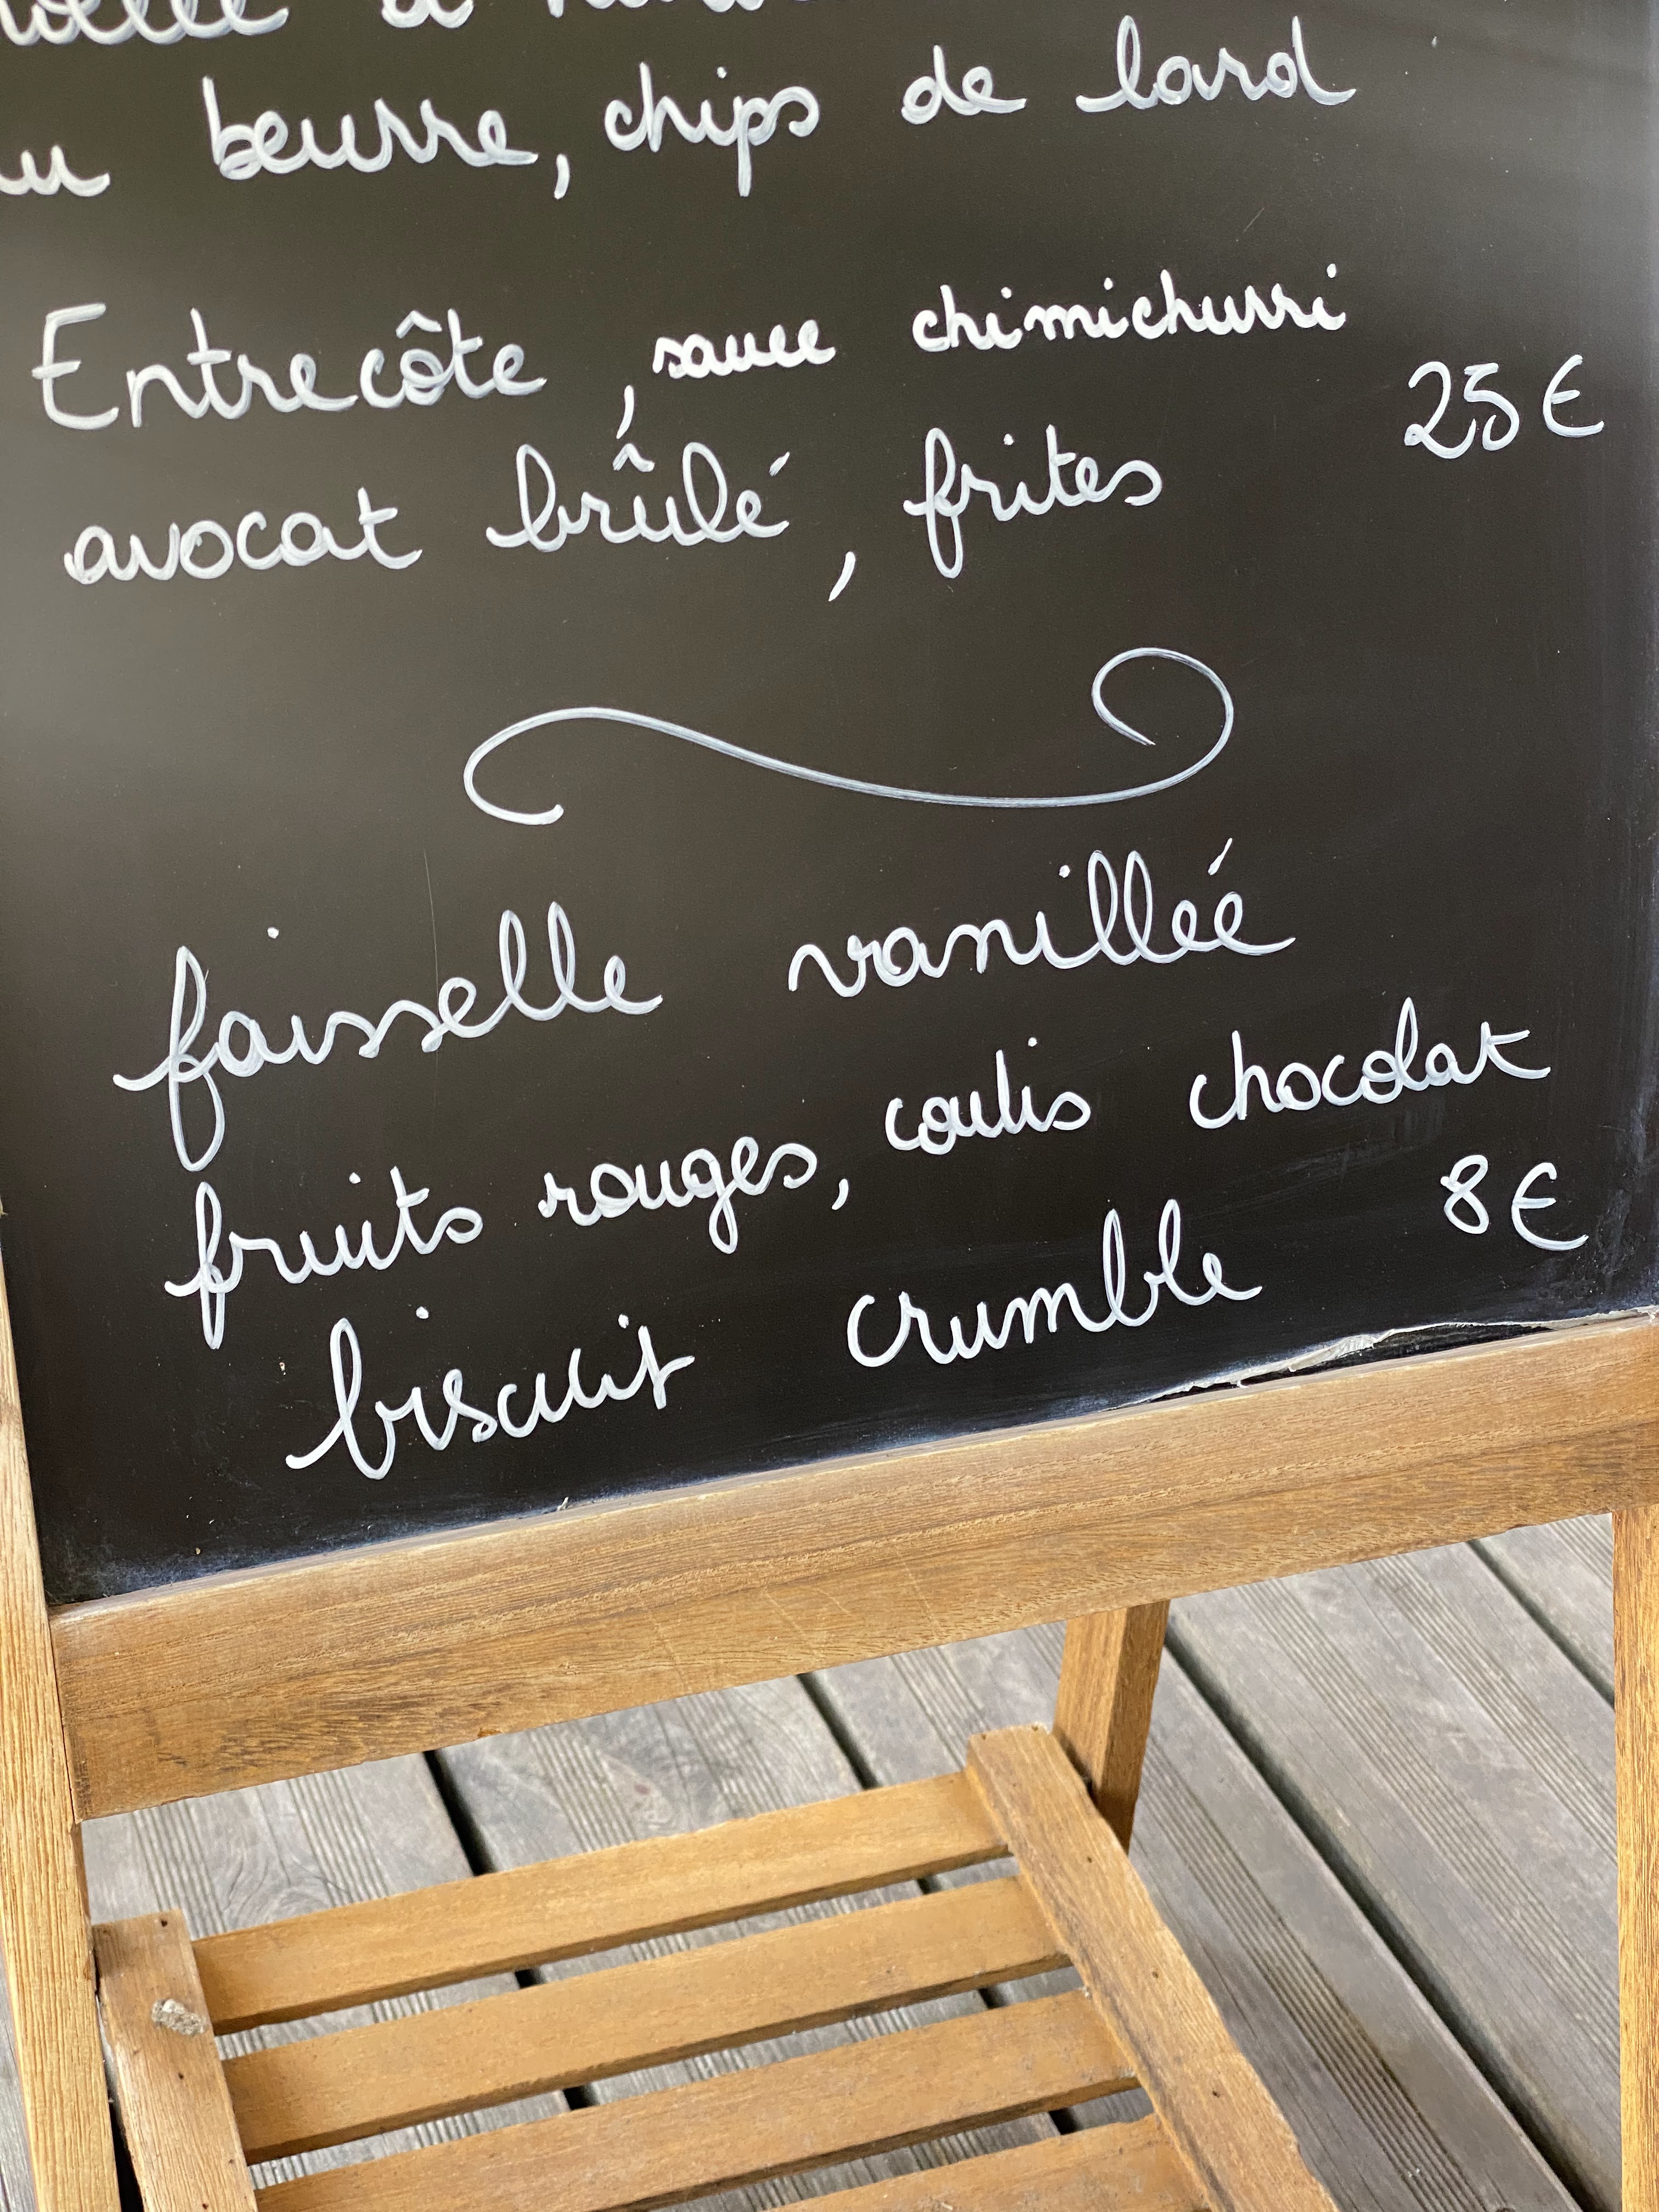 beurre, chips de lard
Entrecôte, sauce chimichurri
25€
avocat brûlé, frites
faisselle vanillée
fruits rouges, coulis chocolat
8€
biscuit crumble